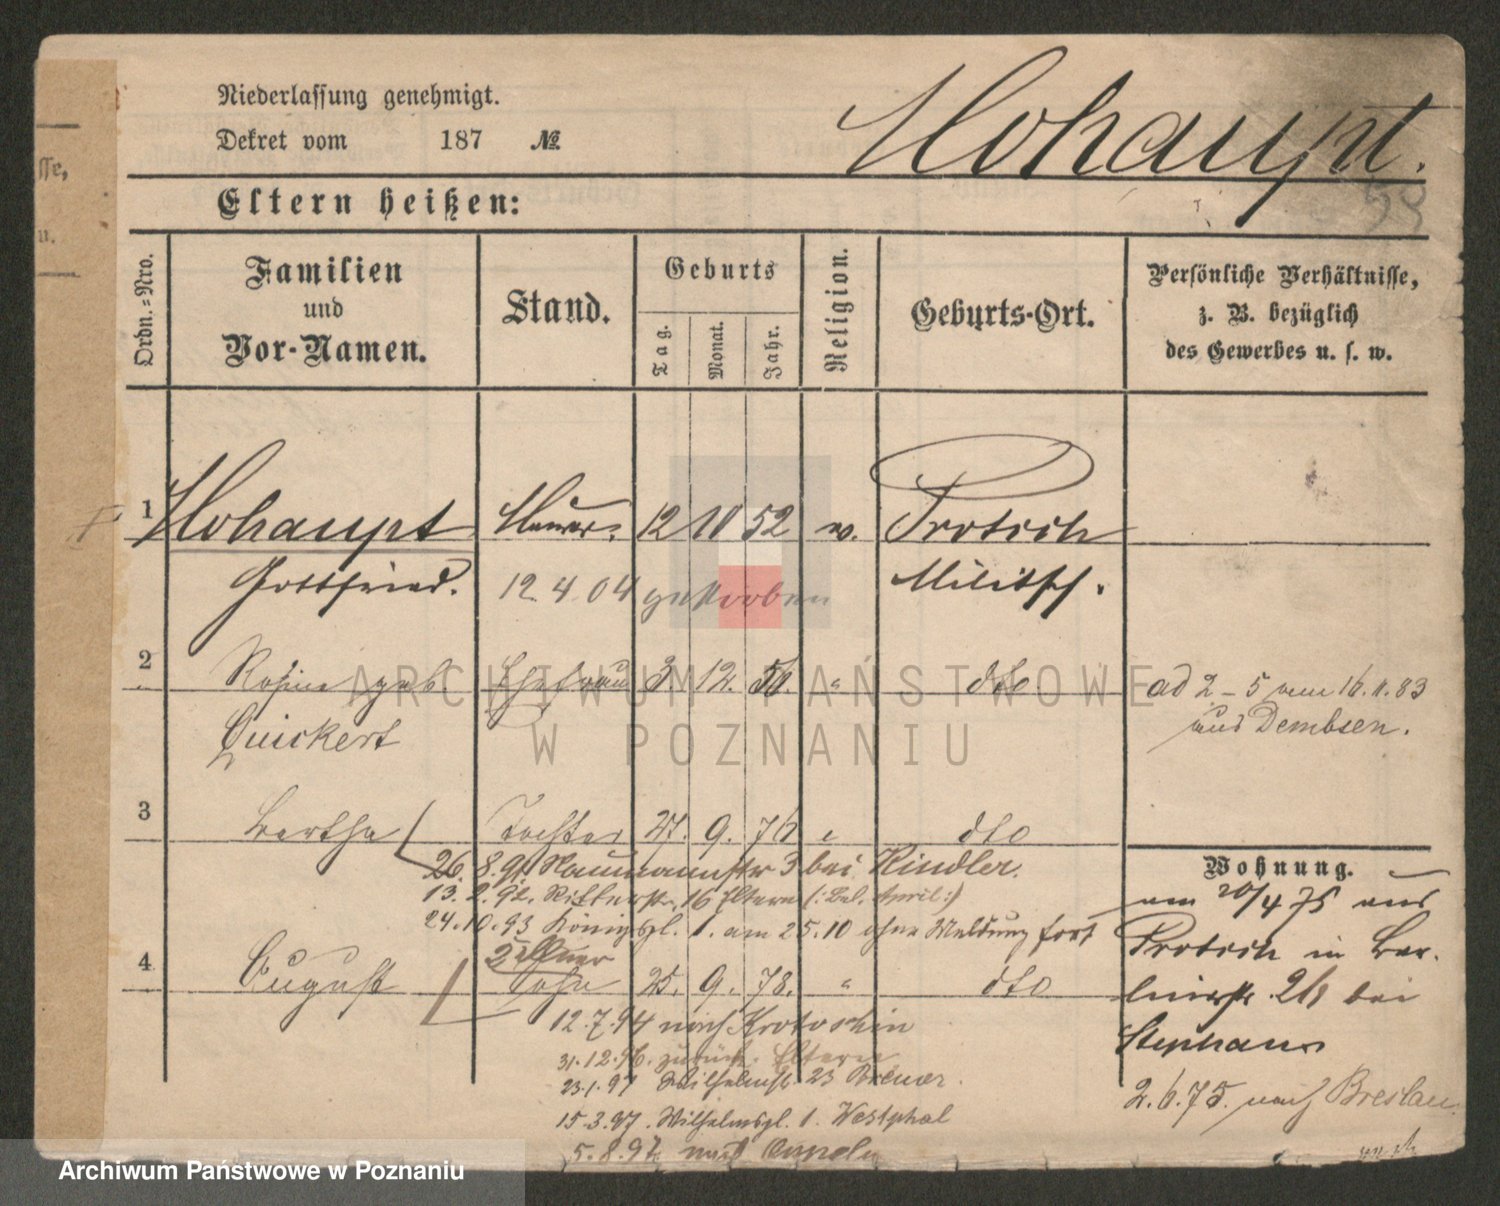 Niederlassung genehmigt.
Dekret vom 187 №
Hohaupt.
59
sse,
u.
Eltern heißen:
Ordn.-Nro.
Familien und Vor-Namen.
Stand.
Geburts
Tag.
Monat.
Jahr.
Religion.
Geburts-Ort.
Persönliche Verhältnisse,
z. B. bezüglich
des Gewerbes u. s. w.
1 Hohaupt 12 11 52 Protsch
Gottfried. 12 4 04 gestorben Militsch.
2 Rosine geb. Ehefrau 3. 12. 50. " dto ad 2 - 5 vom 16.11.83
Quickert aus Dembsen.
3 Bertha Tochter 27. 9. 76 " dto
Wohnung.
26. 8. 91 Naumannstr 3 bei Kindler.
13. 2. 92. Ritterstr. 16 Eltern
24. 10. 93 Königspl. 1. am 25.10 ohne Meldung fort
am 20/4 75 aus
Protsch in Ber-
linerstr. bei
Stephan
2. 6. 75. nach Breslau
4 August Sohn 25. 9. 78. " dto
12. 7. 94 nach Krotoschin
31. 12. 96. zurück. Eltern
23. 1. 97 Wilhelmstr. 23
15. 3. 97. Wilhelmspl. 1. Westphal
5. 8. 97. nach
ARCHIWUM PAŃSTWOWE
W POZNANIU
Archiwum Państwowe w Poznaniu